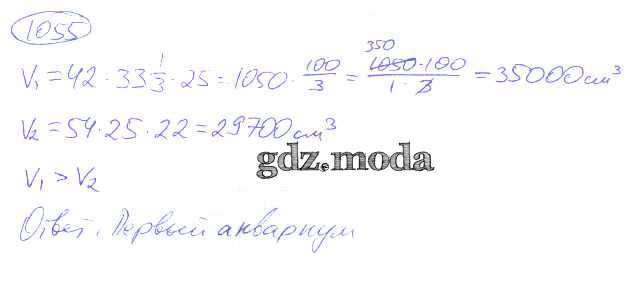 1055
V₁ = 42 · 33 1/3 · 25 = 1050 · 100/3 = 350 1050 · 100 / 1 · 3 = 35000 см³
V₂ = 54 · 25 · 22 = 29700 см³
gdz.moda
V₁ > V₂
Ответ. Первый аквариум